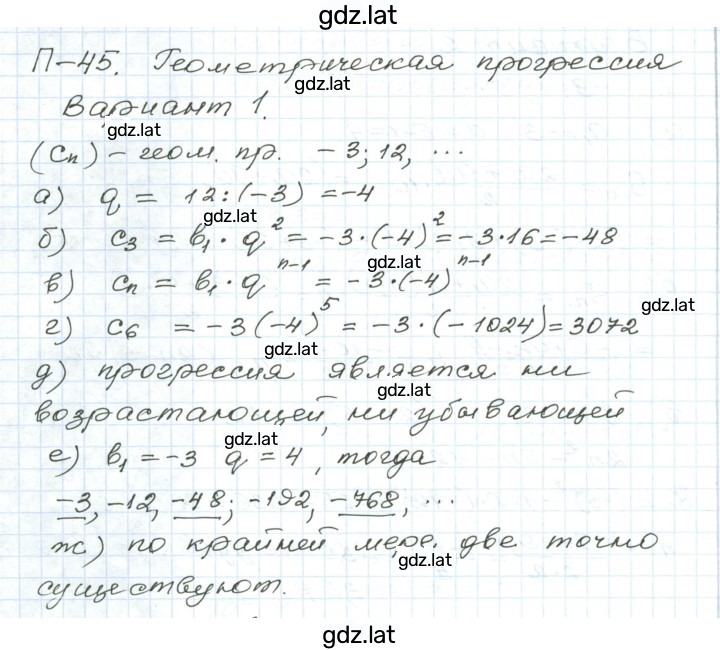 gdz.lat
П-45. Геометрическая прогрессия
gdz.lat
Вариант 1.
gdz.lat
(Cₙ) – геом. пр. – 3; 12, ...
а) q = 12:(–3) = –4
gdz.lat
б) c₃ = b₁ · q² = –3·(–4)² = –3·16 = –48
gdz.lat
в) cₙ = b₁ · qⁿ⁻¹ = –3·(–4)ⁿ⁻¹
gdz.lat
г) c₆ = –3(–4)⁵ = –3·(–1024) = 3072
gdz.lat
д) прогрессия является ни
gdz.lat
возрастающей, ни убывающей
gdz.lat
е) b₁ = –3 q = 4, тогда
–3, –12, –48; –192, –768, ...
ж) по крайней мере две точно
gdz.lat
существуют.
gdz.lat